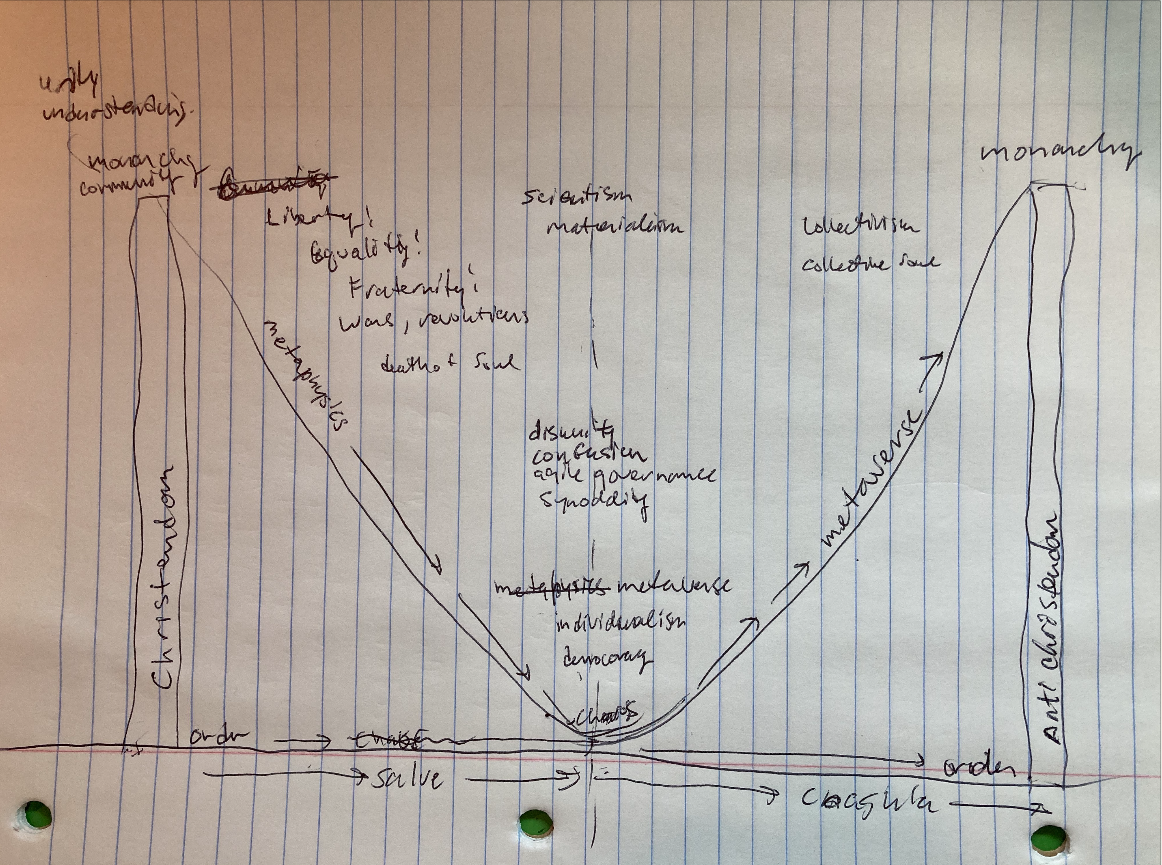 unity
understanding.
monarchy
community
Liberty!
Equality!
Fraternity!
wars, revolutions
death of soul
scientism
materialism
collectivism
collective soul
monarchy
metaphysics
disunity
confusion
agile governance
synodality
metaphysics metaverse
individualism
democracy
chaos
metaverse
Christendom
Anti christendom
order
chaos
order
salve
coagula